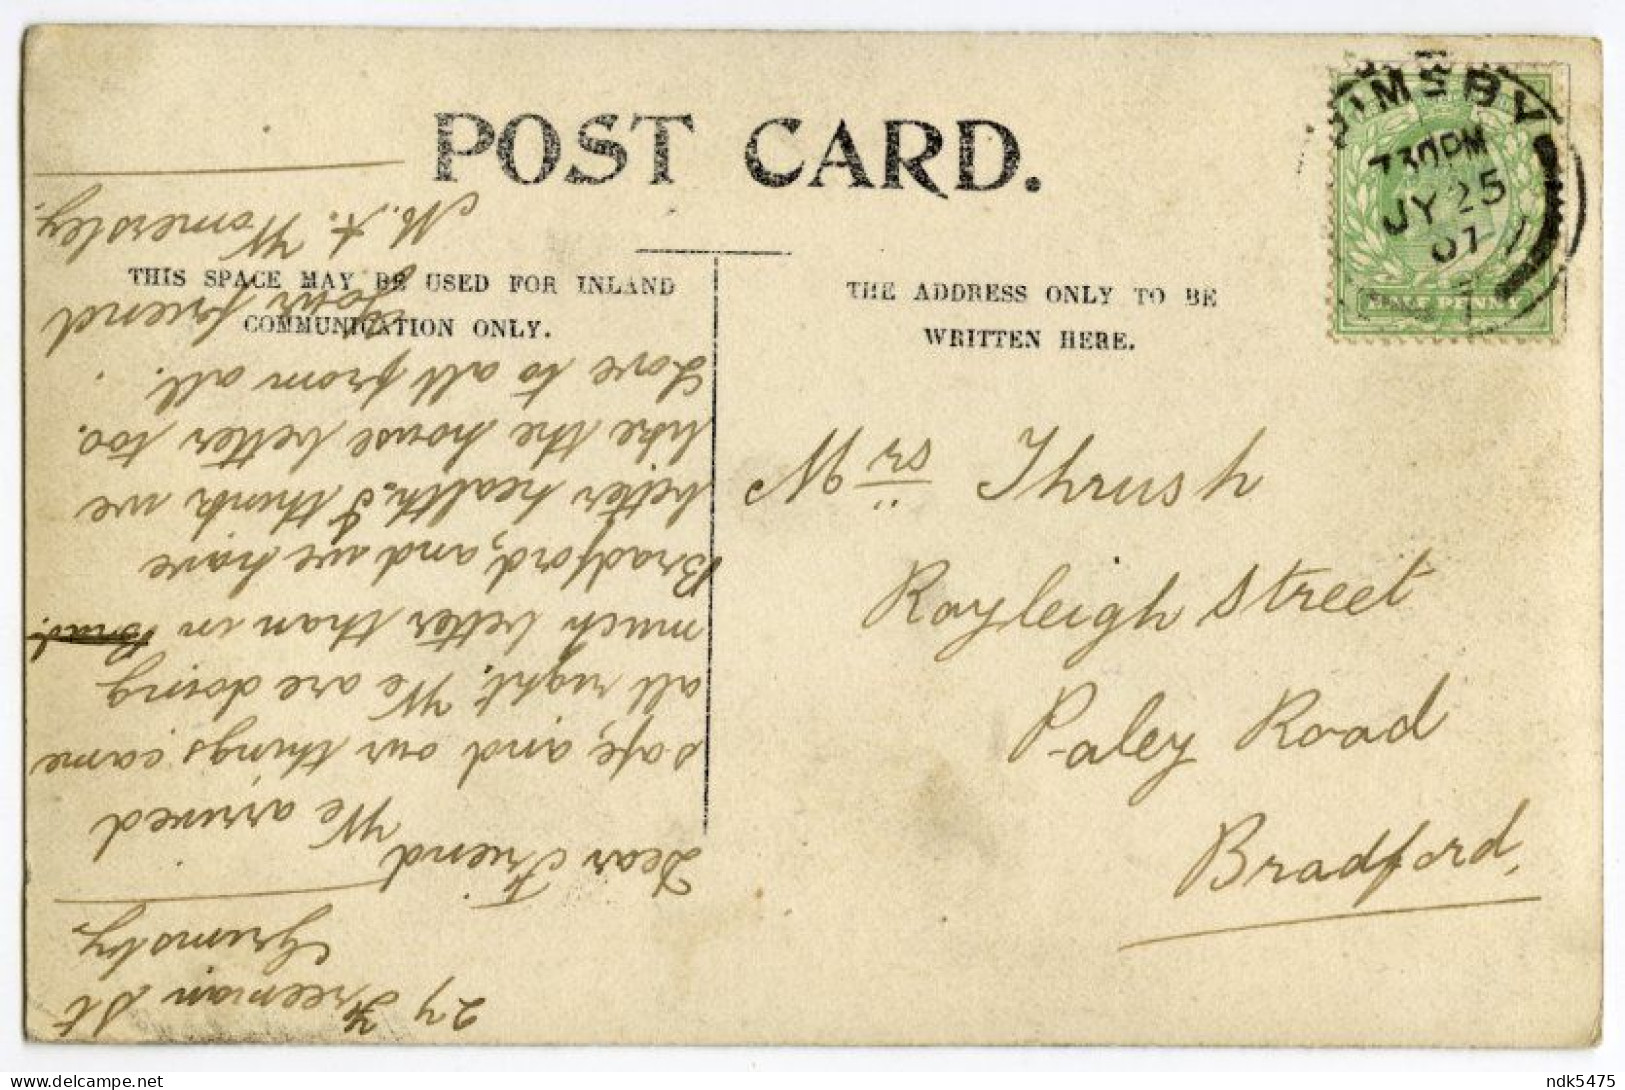 POST CARD.
THIS SPACE MAY BE USED FOR INLAND
COMMUNICATION ONLY.
THE ADDRESS ONLY TO BE
WRITTEN HERE.
GRIMSBY
7 30 PM
JY 25
07
HALF PENNY
Mrs Thrush
Rayleigh Street
Paley Road
Bradford.
27 Freeman St
Grimsby.
Dear Friend
We arrived
safe, and our things came
all right. We are doing
much better than in Brad.
Bradford, and we have
better health. I think we
like the house better too.
Love to all from all.
Your friend
M. A. Womersley.
ndk5475